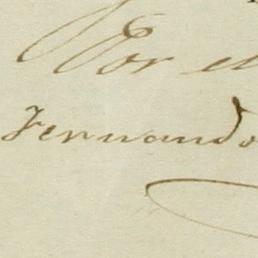 Por el
Fernando